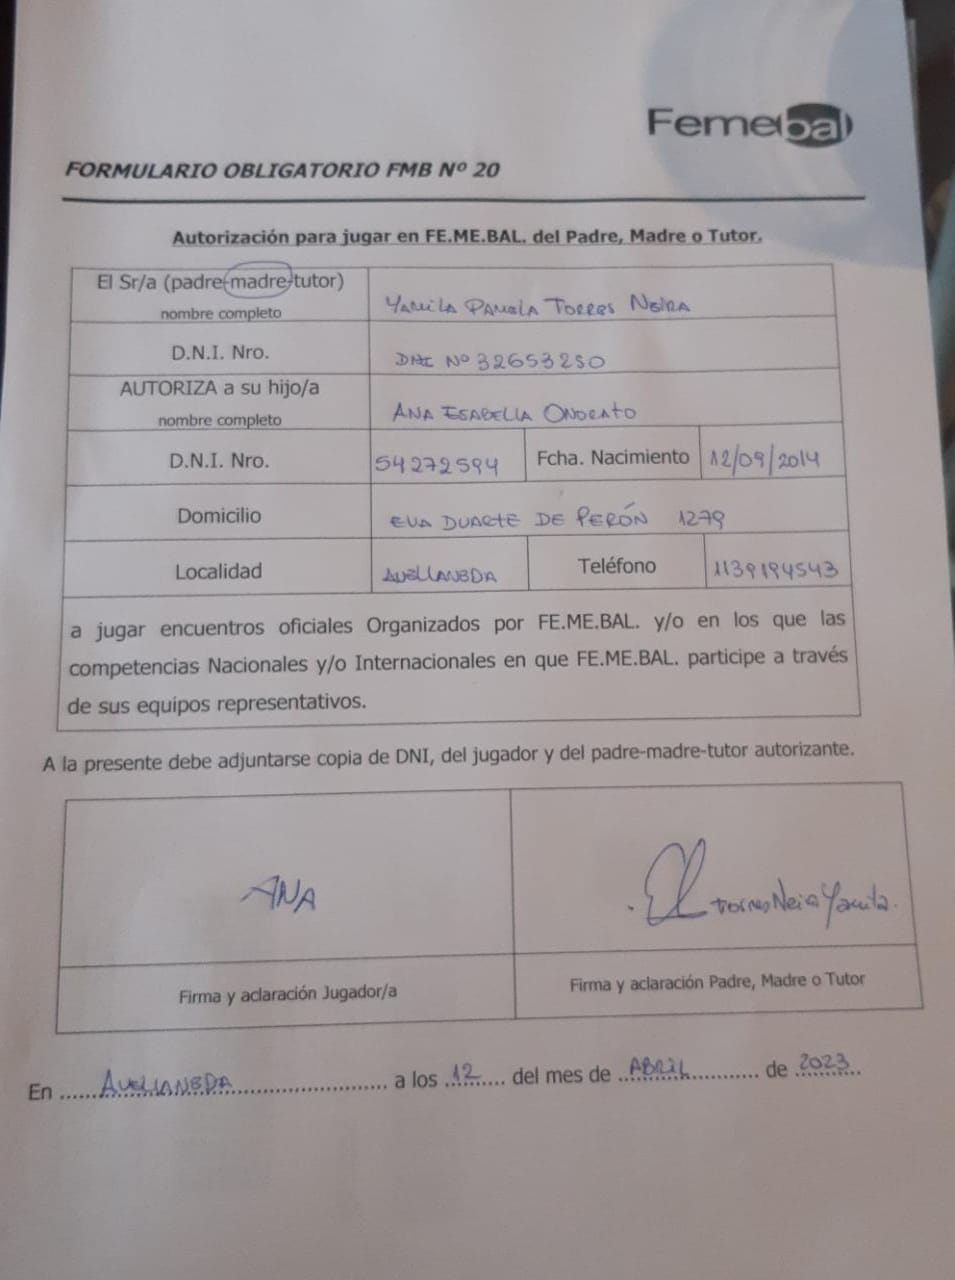 Femebal
FORMULARIO OBLIGATORIO FMB Nº 20
Autorización para jugar en FE.ME.BAL. del Padre, Madre o Tutor.
El Sr/a (padre-madre-tutor)
nombre completo
YAMILA PAMELA TORRES NEIRA
D.N.I. Nro.
DNI Nº 32653250
AUTORIZA a su hijo/a
nombre completo
ANA ISABELLA ONORATO
D.N.I. Nro. 54272594 Fcha. Nacimiento 12/09/2014
Domicilio EVA DUARTE DE PERÓN 1279
Localidad AVELLANEDA Teléfono 1139194543
a jugar encuentros oficiales Organizados por FE.ME.BAL. y/o en los que las
competencias Nacionales y/o Internacionales en que FE.ME.BAL. participe a través
de sus equipos representativos.
A la presente debe adjuntarse copia de DNI, del jugador y del padre-madre-tutor autorizante.
ANA
Torres Neira Yamila.
Firma y aclaración Jugador/a
Firma y aclaración Padre, Madre o Tutor
En ......AVELLANEDA.................................. a los ..12...... del mes de ..ABRIL............ de 2023..